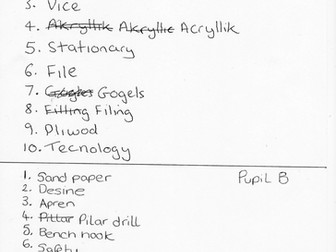 3. Vice
4. Akryllik Akryllic Acryllik
5. Stationary
6. File
7. Gogles Gogels
8. Fitting Filing
9. Pliwod
10. Tecnology
1. Sand paper Pupil B
2. Desine
3. Apren
4. Pittar Pilar drill
5. Bench hook
6. Safety